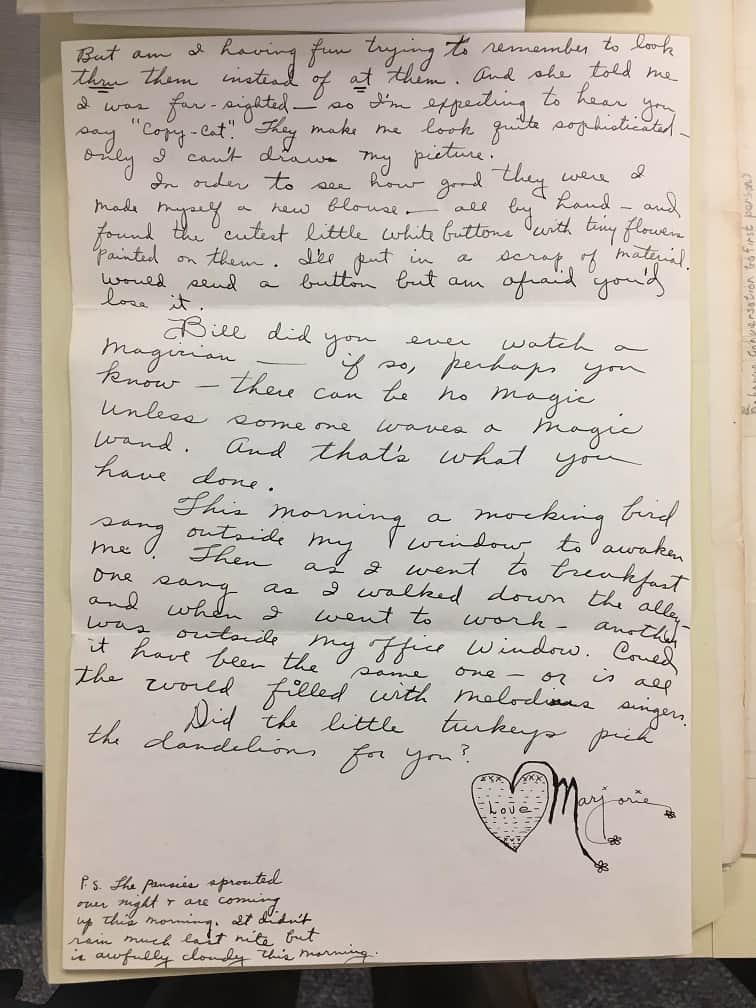 But am I having fun trying to remember to look
thru them instead of at them. And she told me
I was far-sighted — so I'm expecting to hear you
say "Copy-Cat". They make me look quite sophisticated —
only I can't draw my picture.
In order to see how good they were I
made myself a new blouse — all by hand — and
found the cutest little white buttons with tiny flowers
painted on them. I'll put in a scrap of material.
Would send a button but am afraid you'd
lose it.
Bill did you ever watch a
magician — if so, perhaps you
know — there can be no magic
unless some one waves a magic
wand. And that's what you
have done.
This morning a mocking bird
sang outside my window to awaken
me. Then as I went to breakfast
one sang as I walked down the alley —
and when I went to work — another
was outside my office window. Could
it have been the same one — or is all
the world filled with melodious singers.
Did the little turkeys pick
the dandelions for you?
xxx
Love
Marjorie
P.S. The pansies sprouted
over night + are coming
up this morning. It didn't
rain much last nite but
is awfully cloudy this morning.
conversation to first person)